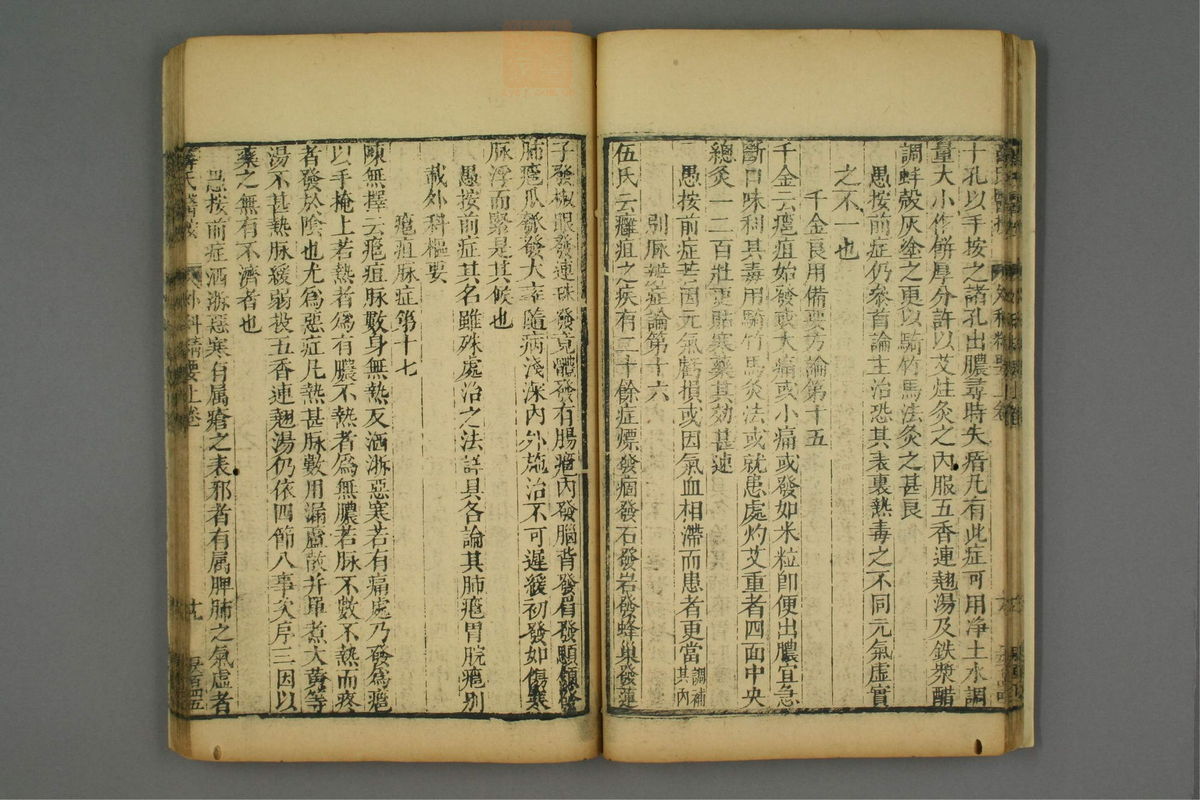 十孔以手按之諸孔出膿尋時失瘡凡有此症可用净土水調
量大小作餅厚分許以艾炷灸之內服五香連翹湯及鉄漿醋
調蚌殼灰塗之更以騎竹馬法灸之甚良
愚按前症仍參首論主治恐其表裏熱毒之不同元氣虛實
之不一也
千金良用備要方論第十五
千金云癰疽始發或大痛或小痛或發如米粒卽便出膿宜急
斷口味利其毒用騎竹馬灸法或就患處灼艾重者四面中央
總灸一二百壯更貼寒藥其効甚速
愚按前症若因元氣虧損或因氣血相滯而患者更當調補其內
別脉辨症論第十六
伍氏云癰疽之疾有三十餘症熛發痼發石發岩發蜂巢發蓮
子發椒眼發連珠發竟體發有腸癰內發腦背發眉發顋頷發
肺癰瓜瓠發大率隨病淺深內外施治不可遲緩初發如傷寒
脉浮而緊是其候也
愚按前症其名雖殊處治之法詳具各論其肺癰胃脘癰別
載外科樞要
癰疽脉症第十七
陳無擇云癰疽脉數身無熱反洒淅惡寒若有痛處乃發為癰
以手掩上若熱者為有膿不熱者為無膿若脉不數不熱而疼
者發於陰也尤為惡症凡熱甚脉數用漏盧散并單煮大黃等
湯不甚熱脉緩弱投五香連翹湯仍依四節八事次序三因以
藥之無有不濟者也
愚按前症洒淅惡寒有属瘡之表邪者有属脾肺之氣虛者
薛氏醫案
外科精要上卷